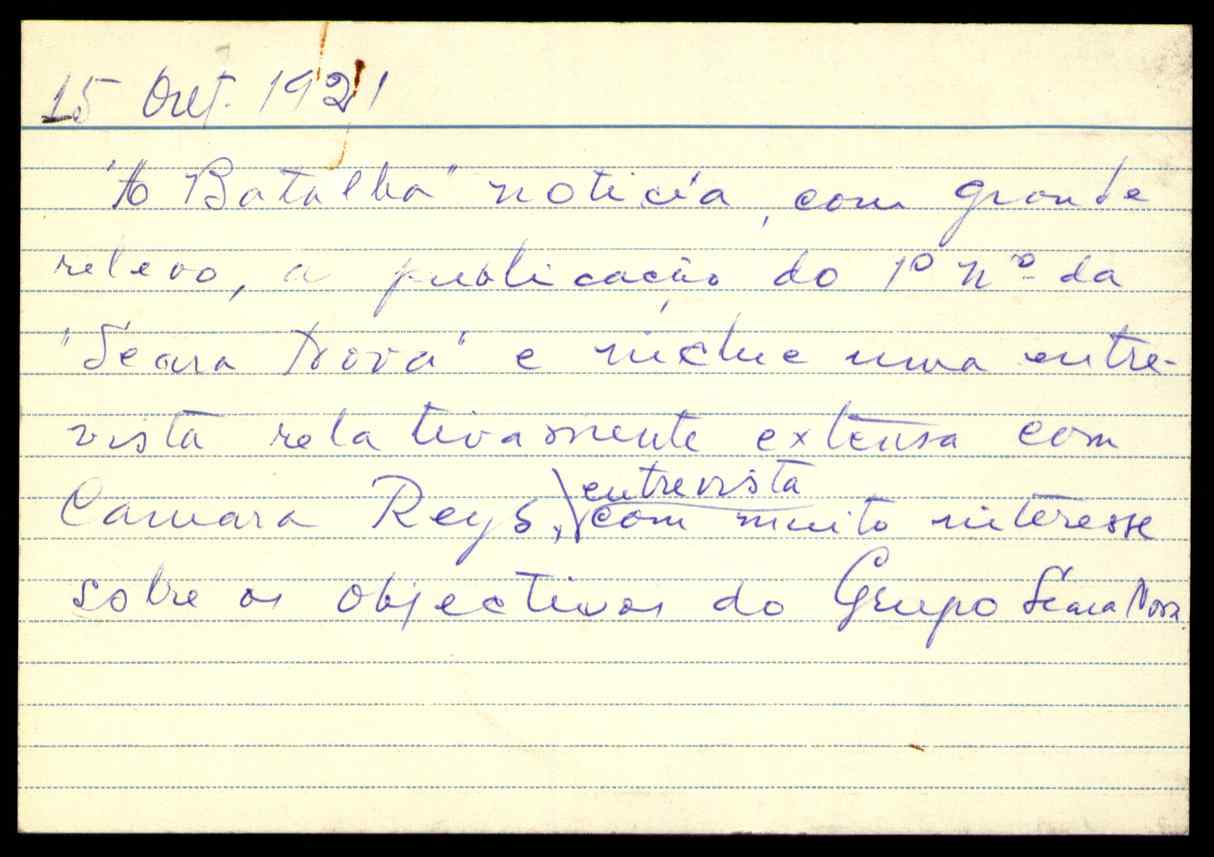 15 Out. 1921
"A Batalha" noticía, com grande
relevo, a publicação do 1º nº da
"Seara Nova" e inclue uma entre-
vista relativamente extensa com
Camara Reys, entrevista
com muito interesse
sobre os objectivos do Grupo Seara Nova.